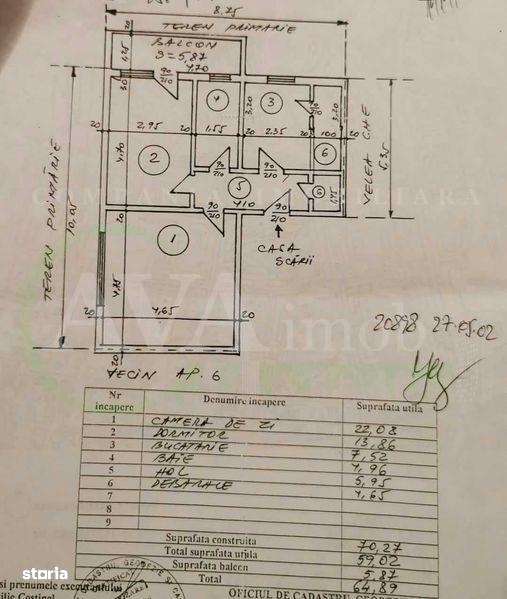 8.75
TEREN PRIMĂRIE
BALCON
S=5,87
4.70
1.25
20
90
210
30
4
3
3,20
90
210
3,20
20
2,95
20
1,55
2.35
100
20
2
4.70
6
90
210
90
210
5
4,10
6
1.75
VELEA GHE
5.35
TEREN PRIMĂRIE
10,05
20
90
210
90
210
1
CASA
SCĂRII
4,75
20
4,65
20
20
VECIN AP. 6
AVA imob
20898 27.05.02
Nr incapere Denumire incapere Suprafata utila
1 CAMERA DE ZI 22,08
2 DORMITOR 13,86
3 BUCATARIE 7,52
4 BAIE 4,96
5 HOL 5,95
6 DEBARALE 4,65
7
8
9
Suprafata construita 70,27
Total suprafata utila 59,02
Suprafata balcon 5,87
Total 64,89
si prenumele executantului
OFICIUL DE CADASTRU GE
ilie Costinel
storia